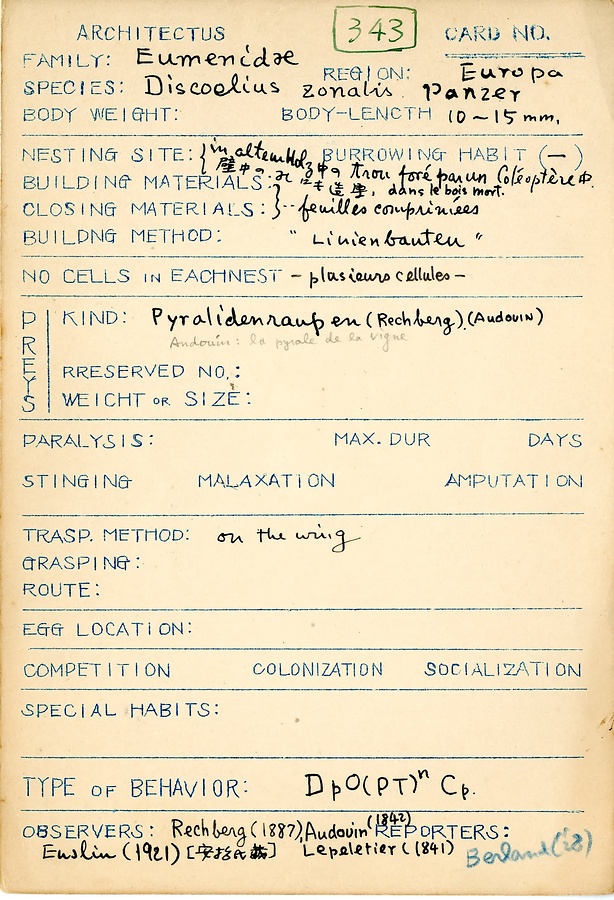 343
ARCHITECTUS CARD NO.
FAMILY: Eumenidae
REGION: Europa
SPECIES: Discoelius zonalis Panzer
BODY WEIGHT: BODY-LENGTH 10~15 mm,
NESTING SITE: { in altem Holz BURROWING HABIT (—)
壁中の 中の trou foré par un Coléoptère
BUILDING MATERIALS: dans le bois mort.
CLOSING MATERIALS: } -- feuilles comprimées
BUILDNG METHOD: "Linienbauten"
NO CELLS IN EACHNEST - plusieurs cellules -
PREYS
KIND: Pyralidenraupen (Rechberg) (Audouin)
Andouin: la pyrale de la vigne
RRESERVED NO.:
WEICHT OR SIZE:
PARALYSIS: MAX. DUR DAYS
STINGING MALAXATION AMPUTATION
TRASP. METHOD: on the wing
GRASPING:
ROUTE:
EGG LOCATION:
COMPETITION COLONIZATION SOCIALIZATION
SPECIAL HABITS:
TYPE OF BEHAVIOR: DpO(PT)ⁿ Cp.
OBSERVERS: Rechberg (1887), Audouin (1842) REPORTERS:
Enslin (1921) Lepeletier (1841) Berland ('28)